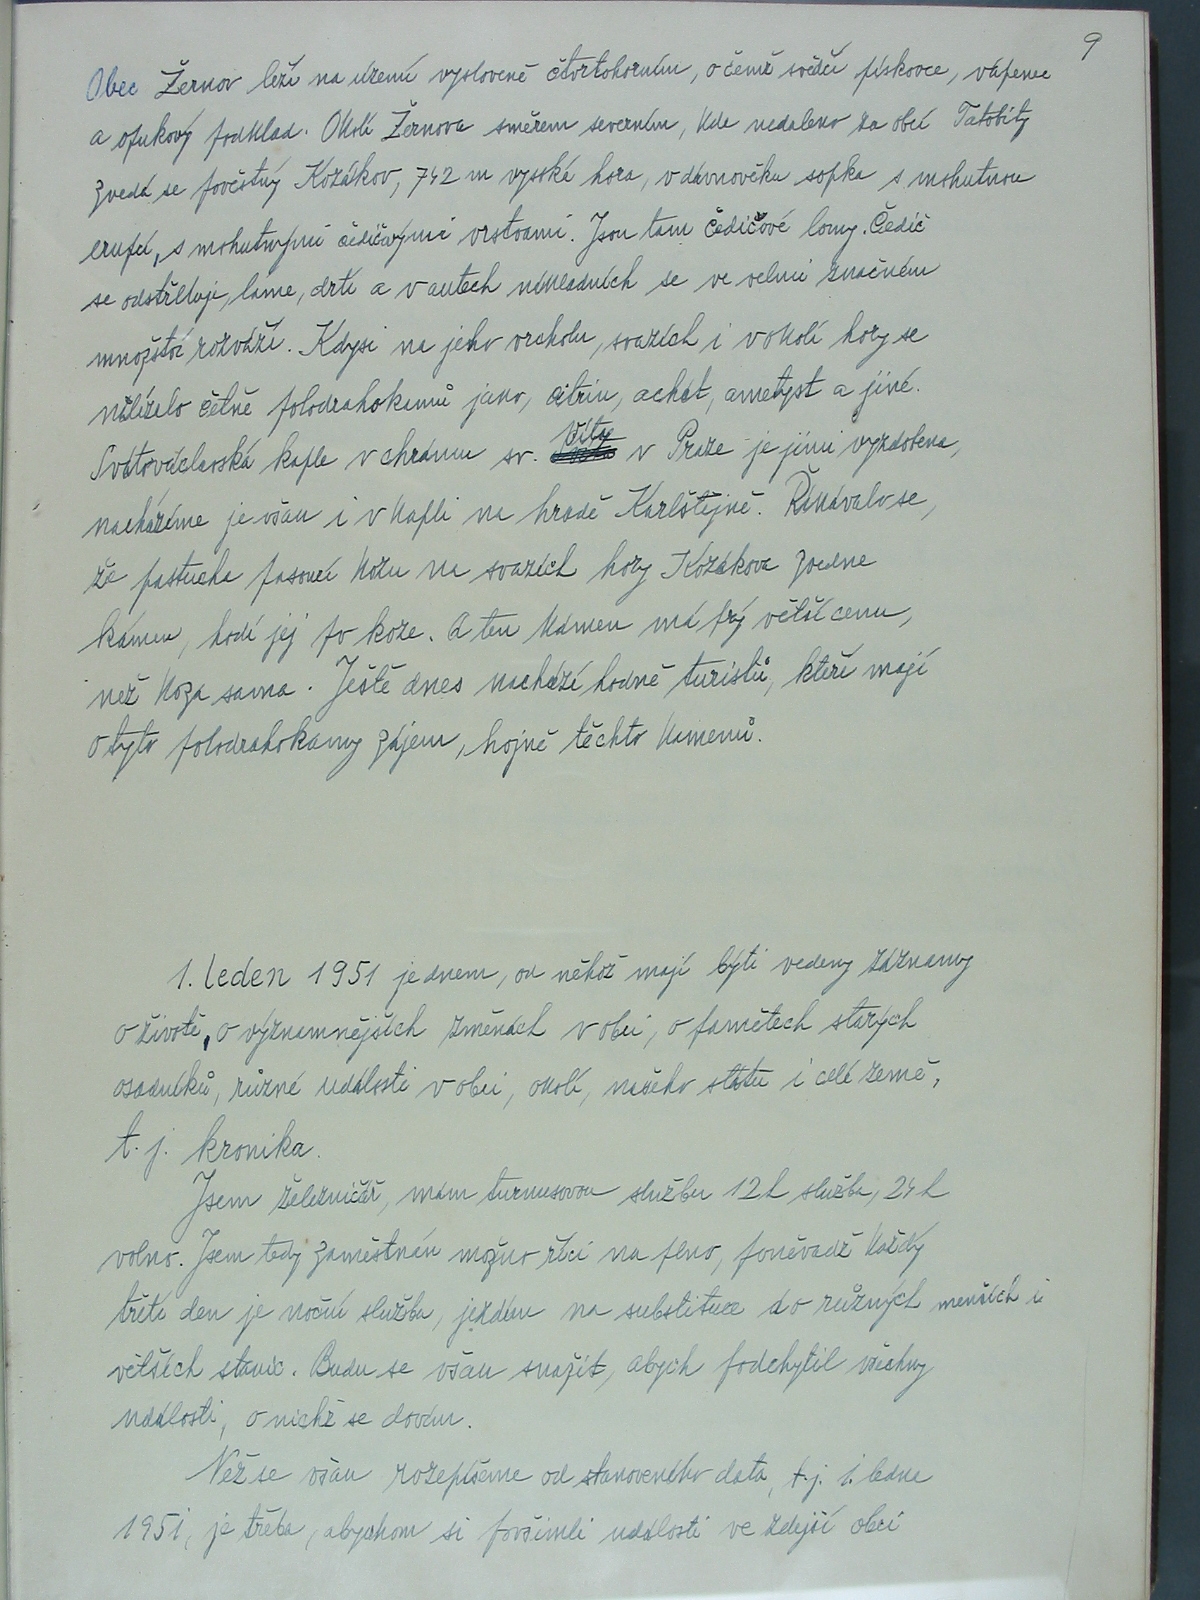 9
Obec Žernov leží na území vysloveně čtvrtohorním, o čemž svědčí pískovce, vápenec
a opukový podklad. Okolí Žernova směrem severním, kde nedaleko za obcí Tatobity
zvedá se pověstný Kozákov, 742 m vysoká hora, v dávnověku sopka s mohutnou
erupcí, s mohutnými čedičovými vrstvami. Jsou tam čedičové lomy. Čedič
se odstřeluje, láme, drtí a v autech nákladních se ve velmi značném
množství rozváží. Kdysi na jeho vrcholu, svazích i v okolí hory se
nalézalo četně polodrahokamů jako, citrin, achát, ametyst a jiné.
Svatováclavská kaple v chrámu sv. Víta v Praze je jimi vyzdobena,
nacházíme je však i v kapli na hradě Karlštejně. Říkávalo se,
že pastucha pasoucí kozu na svazích hory Kozákova zvedne
kámen, hodí jej po koze. A ten kámen má prý větší cenu,
než koza sama. Ještě dnes nachází hodně turistů, kteří mají
o tyto polodrahokamy zájem, hojně těchto kamenů.
1. leden 1951 je dnem, od něhož mají býti vedeny záznamy
o životě, o významnějších změnách v obci, o pamětech starých
osadníků, různé události v obci, okolí, našeho státu i celé země,
t. j. kronika.
Jsem železničář, mám turnusovou službu 12 h služba, 24 h
volno. Jsem tedy zaměstnán možno říci na plno, poněvadž každý
třetí den je noční služba, jezdím na substituce do různých menších i
větších stanic. Budu se však snažit, abych podchytil všechny
události, o nichž se dovím.
Než se však rozepíšeme od stanoveného data, t. j. 1. ledna
1951, je třeba, abychom si povšimli událostí ve zdejší obci